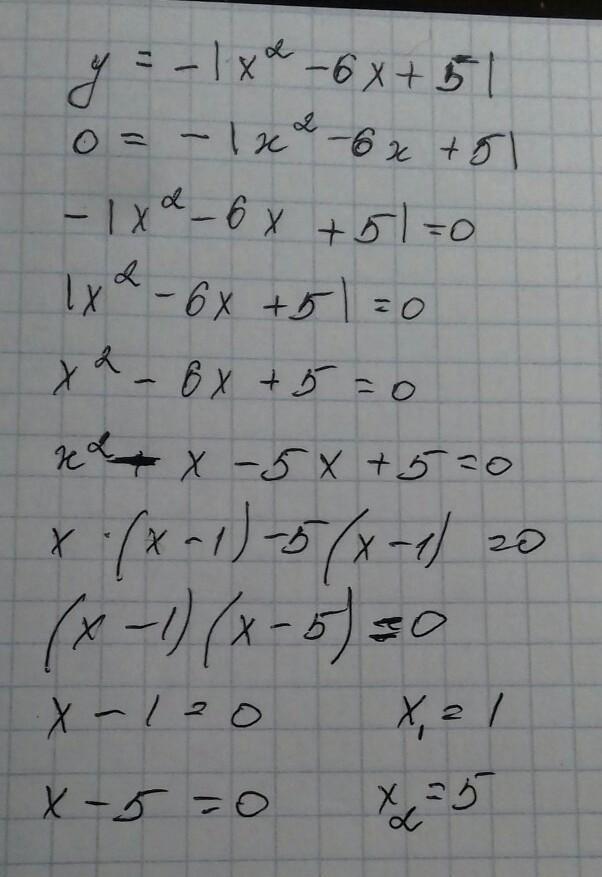 y = -|x² - 6x + 5|
0 = -|x² - 6x + 5|
-|x² - 6x + 5| = 0
|x² - 6x + 5| = 0
x² - 6x + 5 = 0
x² - x - 5x + 5 = 0
x · (x - 1) - 5(x - 1) = 0
(x - 1)(x - 5) = 0
x - 1 = 0 x₁ = 1
x - 5 = 0 x₂ = 5